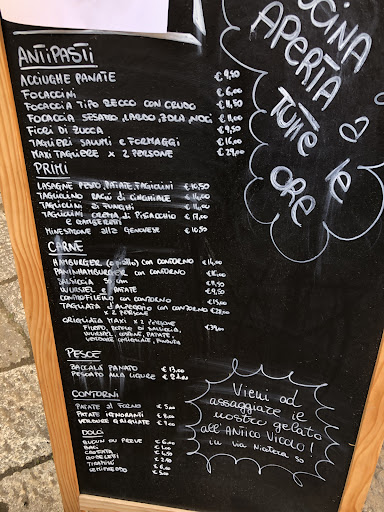 CUCINA
APERTA
a
TUTTE le
ORE
ANTIPASTI
ACCIUGHE PANATE €9,50
FOCACCINI €6,00
FOCACCIA TIPO RECCO CON CRUDO €11,50
FOCACCIA SESAMO, LARDO, ZOLA, NOCI €11,00
FIORI DI ZUCCA €9,50
TAGLIERI SALUMI e FORMAGGI €16,00
MAXI TAGLIERE x 2 PERSONE €29,00
PRIMI
LASAGNE PESTO, PATATE, FAGIOLINI €10,50
TAGLIOLINO RAGÙ di CINGHIALE €14,00
TAGLIOLINI ai FUNGHI €14,00
TAGLIOLINI CREMA di PISTACCHIO €17,00
e GAMBERETTI
MINESTRONE alla GENOVESE €10,50
CARNE
HAMBURGER CON CONTORNO €14,00
PANINHAMBURGER con CONTORNO €16,00
SALSICCIA 50 cm €11,50
WURSTEL e PATATE €9,50
CONTROFILETTO CON CONTORNO €15,00
TAGLIATA D'ANGELLO con CONTORNO €28,00
x 2 PERSONE
GRIGLIATA MAXI x 2 PERSONE €39,00
WURSTEL, COSTINE, PATATE,
VERDURE GRIGLIATE,
PESCE
BACCALÀ PANATO €13,00
PESCATO ALLA LIGURE
CONTORNI
PATATE al FORNO €5,00
PATATE IGNORANTI €8,00
VERDURE GRIGLIATE €7,00
DOLCI
BUDIN DU PREVE €6,00
BACI
CROSTATA €4,50
TIRAMISÙ
SEMIFREDDO €5,00
Vieni ad
assaggiare il
nostro gelato
all'ANTICO VICOLO!
in via Nicotera 50